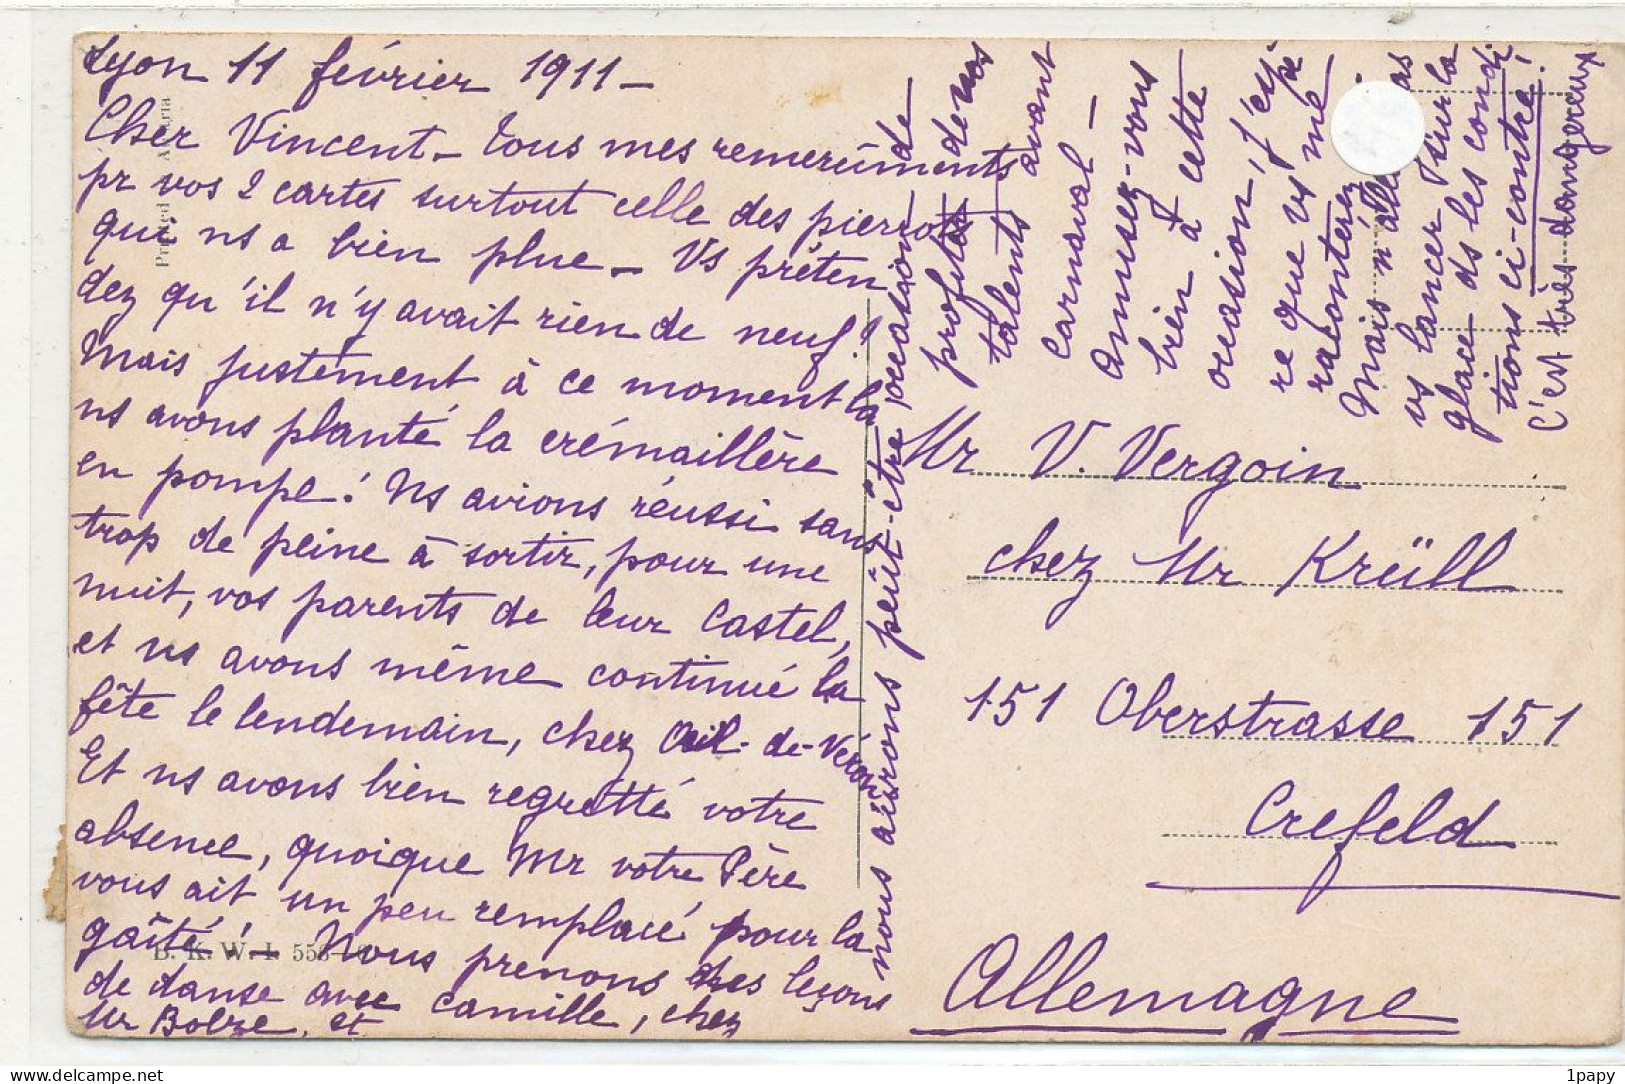 Lyon 11 février 1911 –
Cher Vincent – Tous mes remerciments
pr vos 2 cartes surtout celle des pierrots
qui ns a bien plue – Vs préten
dez qu'il n'y avait rien de neuf!
Mais justement à ce moment là
ns avons planté la crémaillère
en pompe! Ns avions réussi sans
trop de peine à sortir, pour une
nuit, vos parents de leur Castel,
et ns avons même continué la
fête le lendemain, chez Œil-de-Véron
Et ns avons bien regretté votre
absence, quoique Mr votre Père
vous ait un peu remplacé pour la
gaîté! – Nous prenons des leçons
de danse avec Camille, chez
Mr Bolze, et
nous aurons peut-être occasion de
profiter de nos
talents avant
carnaval –
Amusez-vous
bien à cette
occasion, j'espè
re que vs me
raconterez
Mais n'allez pas
vs lancer sur la
glace ds les condi
tions ci-contre!
c'est très dangereux
Mr V. Vergoin
chez Mr Krüll
151 Oberstrasse 151
Crefeld
Allemagne
Printed Austria
B. K. W. I. 55
1papy